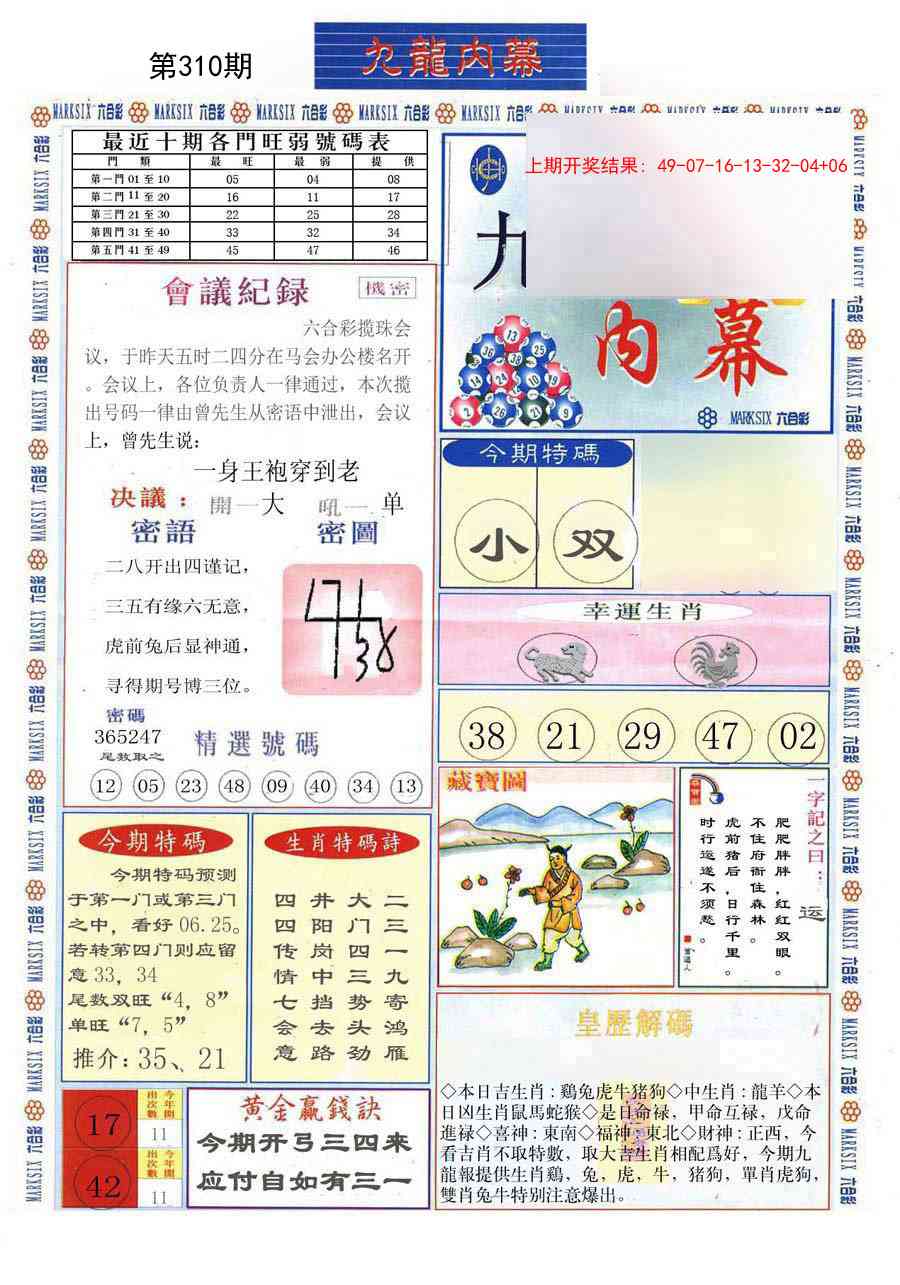 第310期
九龍内幕
MARKSIX 六合彩 MARKSIX 六合彩 MARKSIX 六合彩 MARKSIX 六合彩 MARKSIX 六合彩
最近十期各門旺弱號碼表
門 類 最 旺 最 弱 提 供
第一門 01 至 10 05 04 08
第二門 11 至 20 16 11 17
第三門 21 至 30 22 25 28
第四門 31 至 40 33 32 34
第五門 41 至 49 45 47 46
上期开奖结果：49-07-16-13-32-04+06
九
内幕
13
36 38 25
14 24 10 19
2 26 21 9
MARKSIX 六合彩
會議紀録
機密
六合彩搅珠会
议，于昨天五时二四分在马会办公楼名开
。会议上，各位负责人一律通过，本次搅
出号码一律由曾先生从密语中泄出，会议
上，曾先生说：
一身王袍穿到老
决議：開一大 吼一单
密語
密圖
二八开出四谨记，
三五有缘六无意，
虎前兔后显神通，
寻得期号博三位。
密碼
365247
尾数取之
精選號碼
12 05 23 48 09 40 34 13
今期特碼
小 双
幸運生肖
38 21 29 47 02
藏寶圖
一字記之曰：运
肥肥胖胖，红红双眼。
不住府衙住森林。
虎前猪后，日行千里。
时行运遂不须愁。
今期特碼
今期特码预测
于第一门或第三门
之中，看好06.25。
若转第四门则应留
意33，34
尾数双旺“4，8”
单旺“7，5”
推介：35、21
生肖特碼詩
二三一九寄鸿雁
大门四三势头劲
井阳岗中挡去路
四四传情七会意
17
今年開出次數
11
42
今年開出次數
11
黄金赢錢訣
今期开弓三四来
应付自如有三一
皇歷解碼
◇本日吉生肖：鷄兔虎牛猪狗◇中生肖：龍羊◇本
日凶生肖鼠馬蛇猴◇是日命禄，甲命互禄，戊命
進禄◇喜神：東南◇福神：東北◇財神：正西，今
看吉肖不取特數，取大吉生肖相配爲好，今期九
龍報提供生肖鷄，兔，虎，牛，猪狗，單肖虎狗，
雙肖兔牛特别注意爆出。